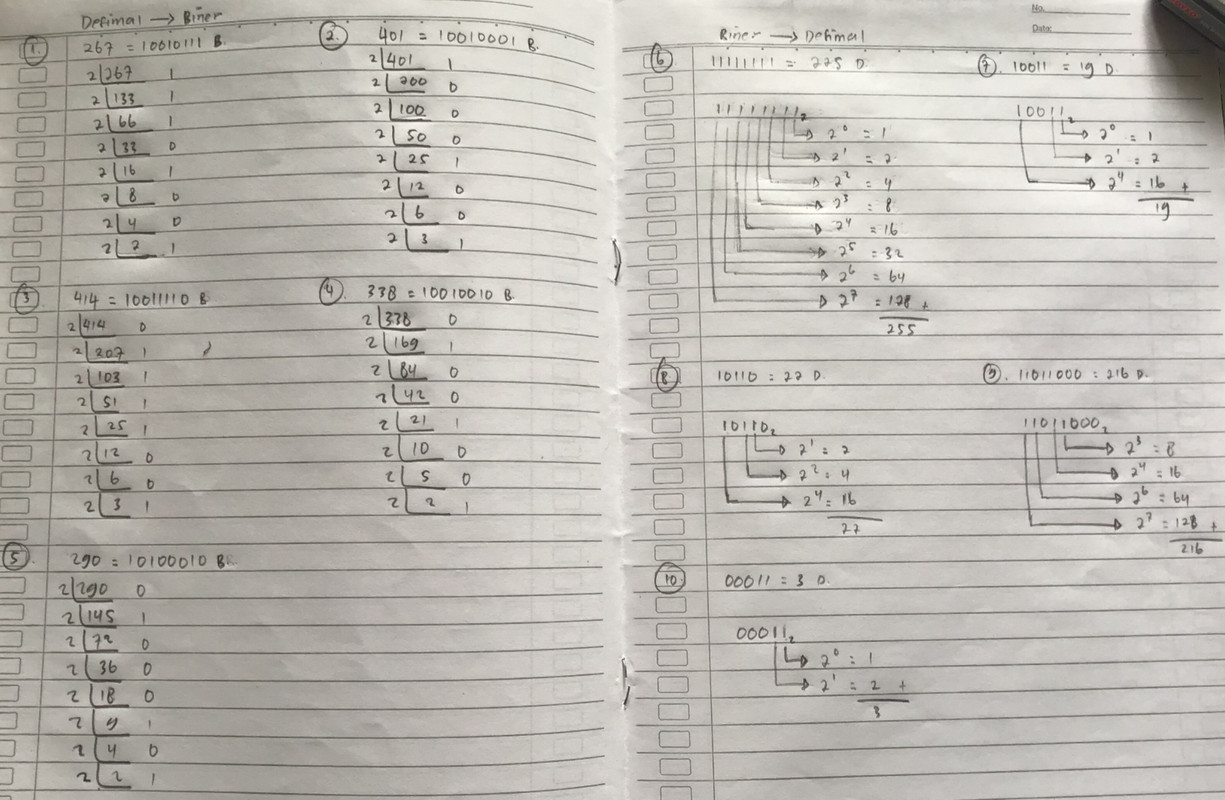 Desimal → Biner
1. 267 = 10010111 B.
2 267 1
2 133 1
2 66 1
2 33 0
2 16 1
2 8 0
2 4 0
2 2 1
2. 401 = 10010001 B.
2 401 1
2 200 0
2 100 0
2 50 0
2 25 1
2 12 0
2 6 0
2 3 1
3 414 = 10011110 B
2 414 0
2 207 1
2 103 1
2 51 1
2 25 1
2 12 0
2 6 0
2 3 1
4. 338 = 10010010 B
2 338 0
2 169 1
2 84 0
2 42 0
2 21 1
2 10 0
2 5 0
2 2 1
5 290 = 10100010 B
2 290 0
2 145 1
2 72 0
2 36 0
2 18 0
2 9 1
2 4 0
2 2 1
No.
Date:
Biner → Desimal
6 11111111 = 225 D.
11111111₂
2⁰ = 1
2¹ = 2
2² = 4
2³ = 8
2⁴ = 16
2⁵ = 32
2⁶ = 64
2⁷ = 128 +
255
7. 10011 = 19 D.
10011₂
2⁰ = 1
2¹ = 2
2⁴ = 16 +
19
8. 10110 = 22 D.
10110₂
2¹ = 2
2² = 4
2⁴ = 16
22
9. 11011000 = 216 D.
11011000₂
2³ = 8
2⁴ = 16
2⁶ = 64
2⁷ = 128 +
216
10 00011 = 3 D.
00011₂
2⁰ = 1
2¹ = 2 +
3